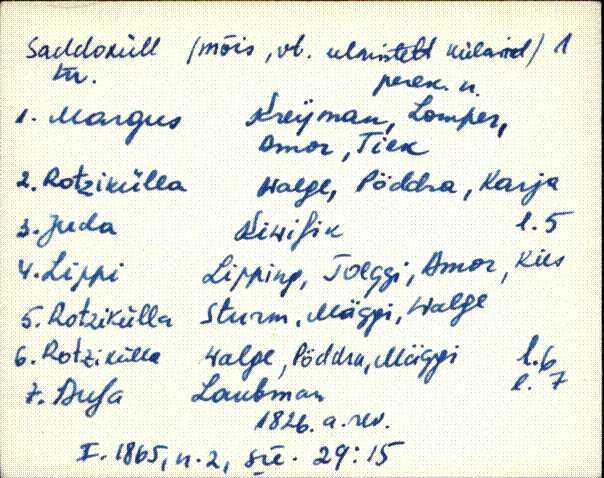 Saddoküll /mõis, vt. ülaintelt külaind/ 1
tw. perek. n.
1. Margus Kreijman, Lomper,
Amor, Tiek
2. Rotzikülla Walge, Pöddra, Karja
3. Juda Kiwisik l. 5
4. Lippi Lipping, Joeggi, Amor, Kiis
5. Rotzikülla Sturm, Mäggi, Walge
6. Rotzikülla Walge, Pöddra, Mäggi l. 6
7. Laubman l. 7
1826. a. rev.
I. 1865, n. 2, 29:15